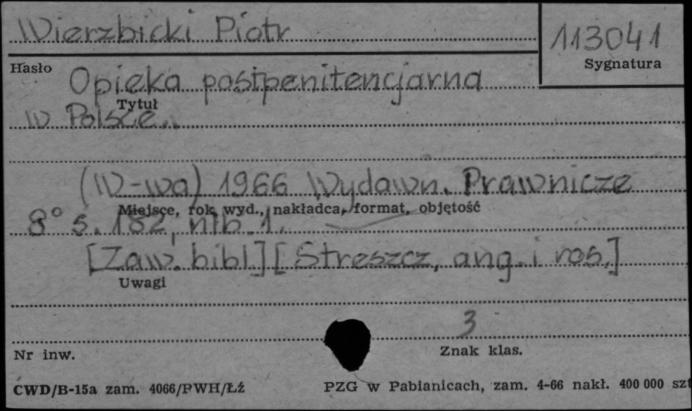 Wierzbicki Piotr
113041
Hasło
Sygnatura
Opieka postpenitencjarna
Tytuł
w Polsce.
(W-wa) 1966 Wydawn. Prawnicze
Miejsce, rok wyd., nakładca, format, objętość
8° s. 182, nlb 1.
[Zaw. bibl.] [Streszcz. ang. i ros.]
Uwagi
3
Nr inw.
Znak klas.
CWD/B-15a zam. 4066/PWH/Łź
PZG w Pabianicach, zam. 4-66 nakł. 400 000 szt